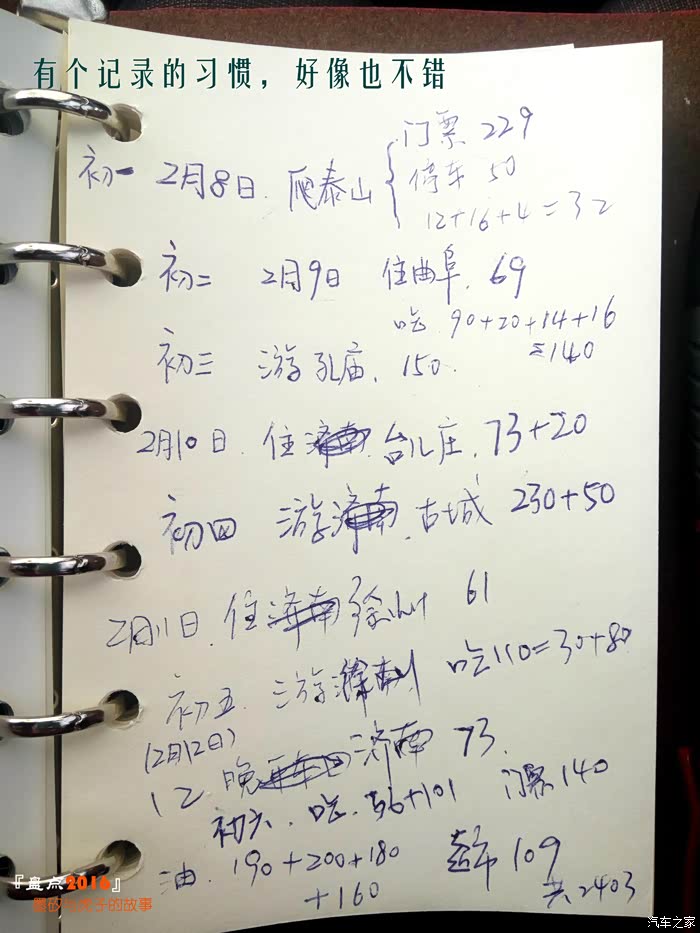 有个记录的习惯，好像也不错
门票 229
初一 2月8日. 爬泰山 停车 50
12+16+4=32
初二 2月9日 住曲阜. 69
吃 90+20+14+16
=140
初三 游孔庙. 150.
2月10日. 住 台儿庄. 73+20
初四 游 古城 230+50
2月11日. 住 徐州 61
初五. 游 吃110=30+80
(2月12日)
12 晚 济南 73.
初六. 吃. 56+101 门票140
油. 190+200+180 109
+160 共2403
『盘点2016』
子的故事
汽车之家